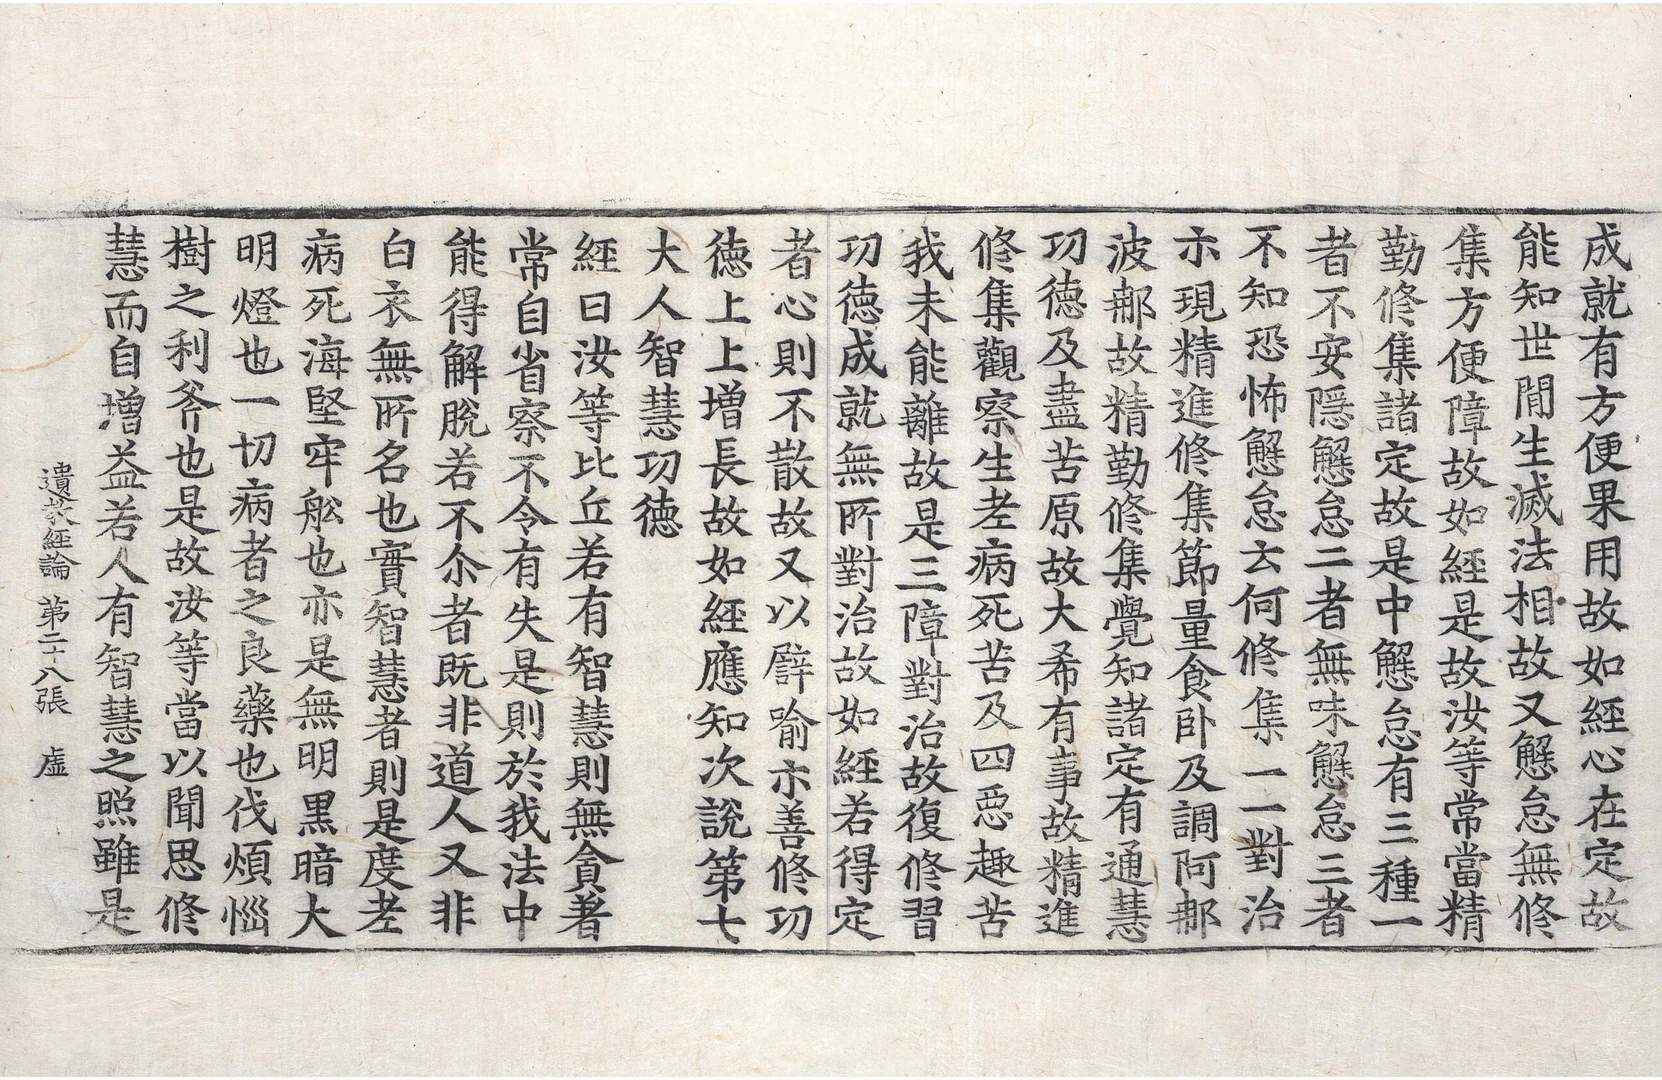 成就有方便果用故如經心在定故
能知世間生滅法相故又懈怠無修
集方便障故如經是故汝等常當精
勤修集諸定故是中懈怠有三種一
者不安隱懈怠二者無味懈怠三者
不知恐怖懈怠云何修集一一對治
示現精進修集節量食臥及調阿那
波那故精勤修集覺知諸定有通慧
功德及盡苦原故大希有事故精進
修集觀察生老病死苦及四惡趣苦
我未能離故是三障對治故復修習
功德成就無所對治故如經若得定
者心則不散故又以譬喻示善修功
德上上增長故如經應知次說第七
大人智慧功德
經曰汝等比丘若有智慧則無貪著
常自省察不令有失是則於我法中
能得解脫若不尒者既非道人又非
白衣無所名也實智慧者則是度老
病死海堅牢舩也亦是無明黑暗大
明燈也一切病者之良藥也伐煩惱
樹之利斧也是故汝等當以聞思修
慧而自增益若人有智慧之照雖是
遺教經論 第二十八張 虛